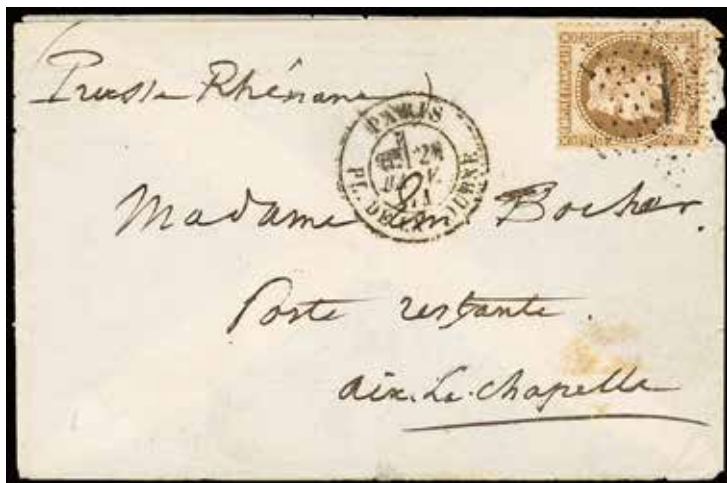 Prusse Rhénane
PARIS
PL. DE LA BOURSE
Madame Bocher.
Poste restante.
Aix. La. Chapelle